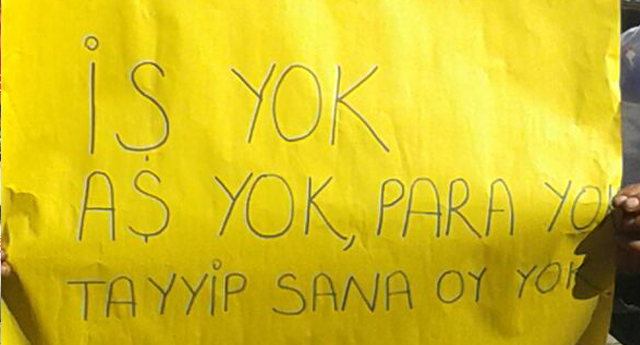 İŞ YOK
AŞ YOK, PARA YOK
TAYYİP SANA OY YOK